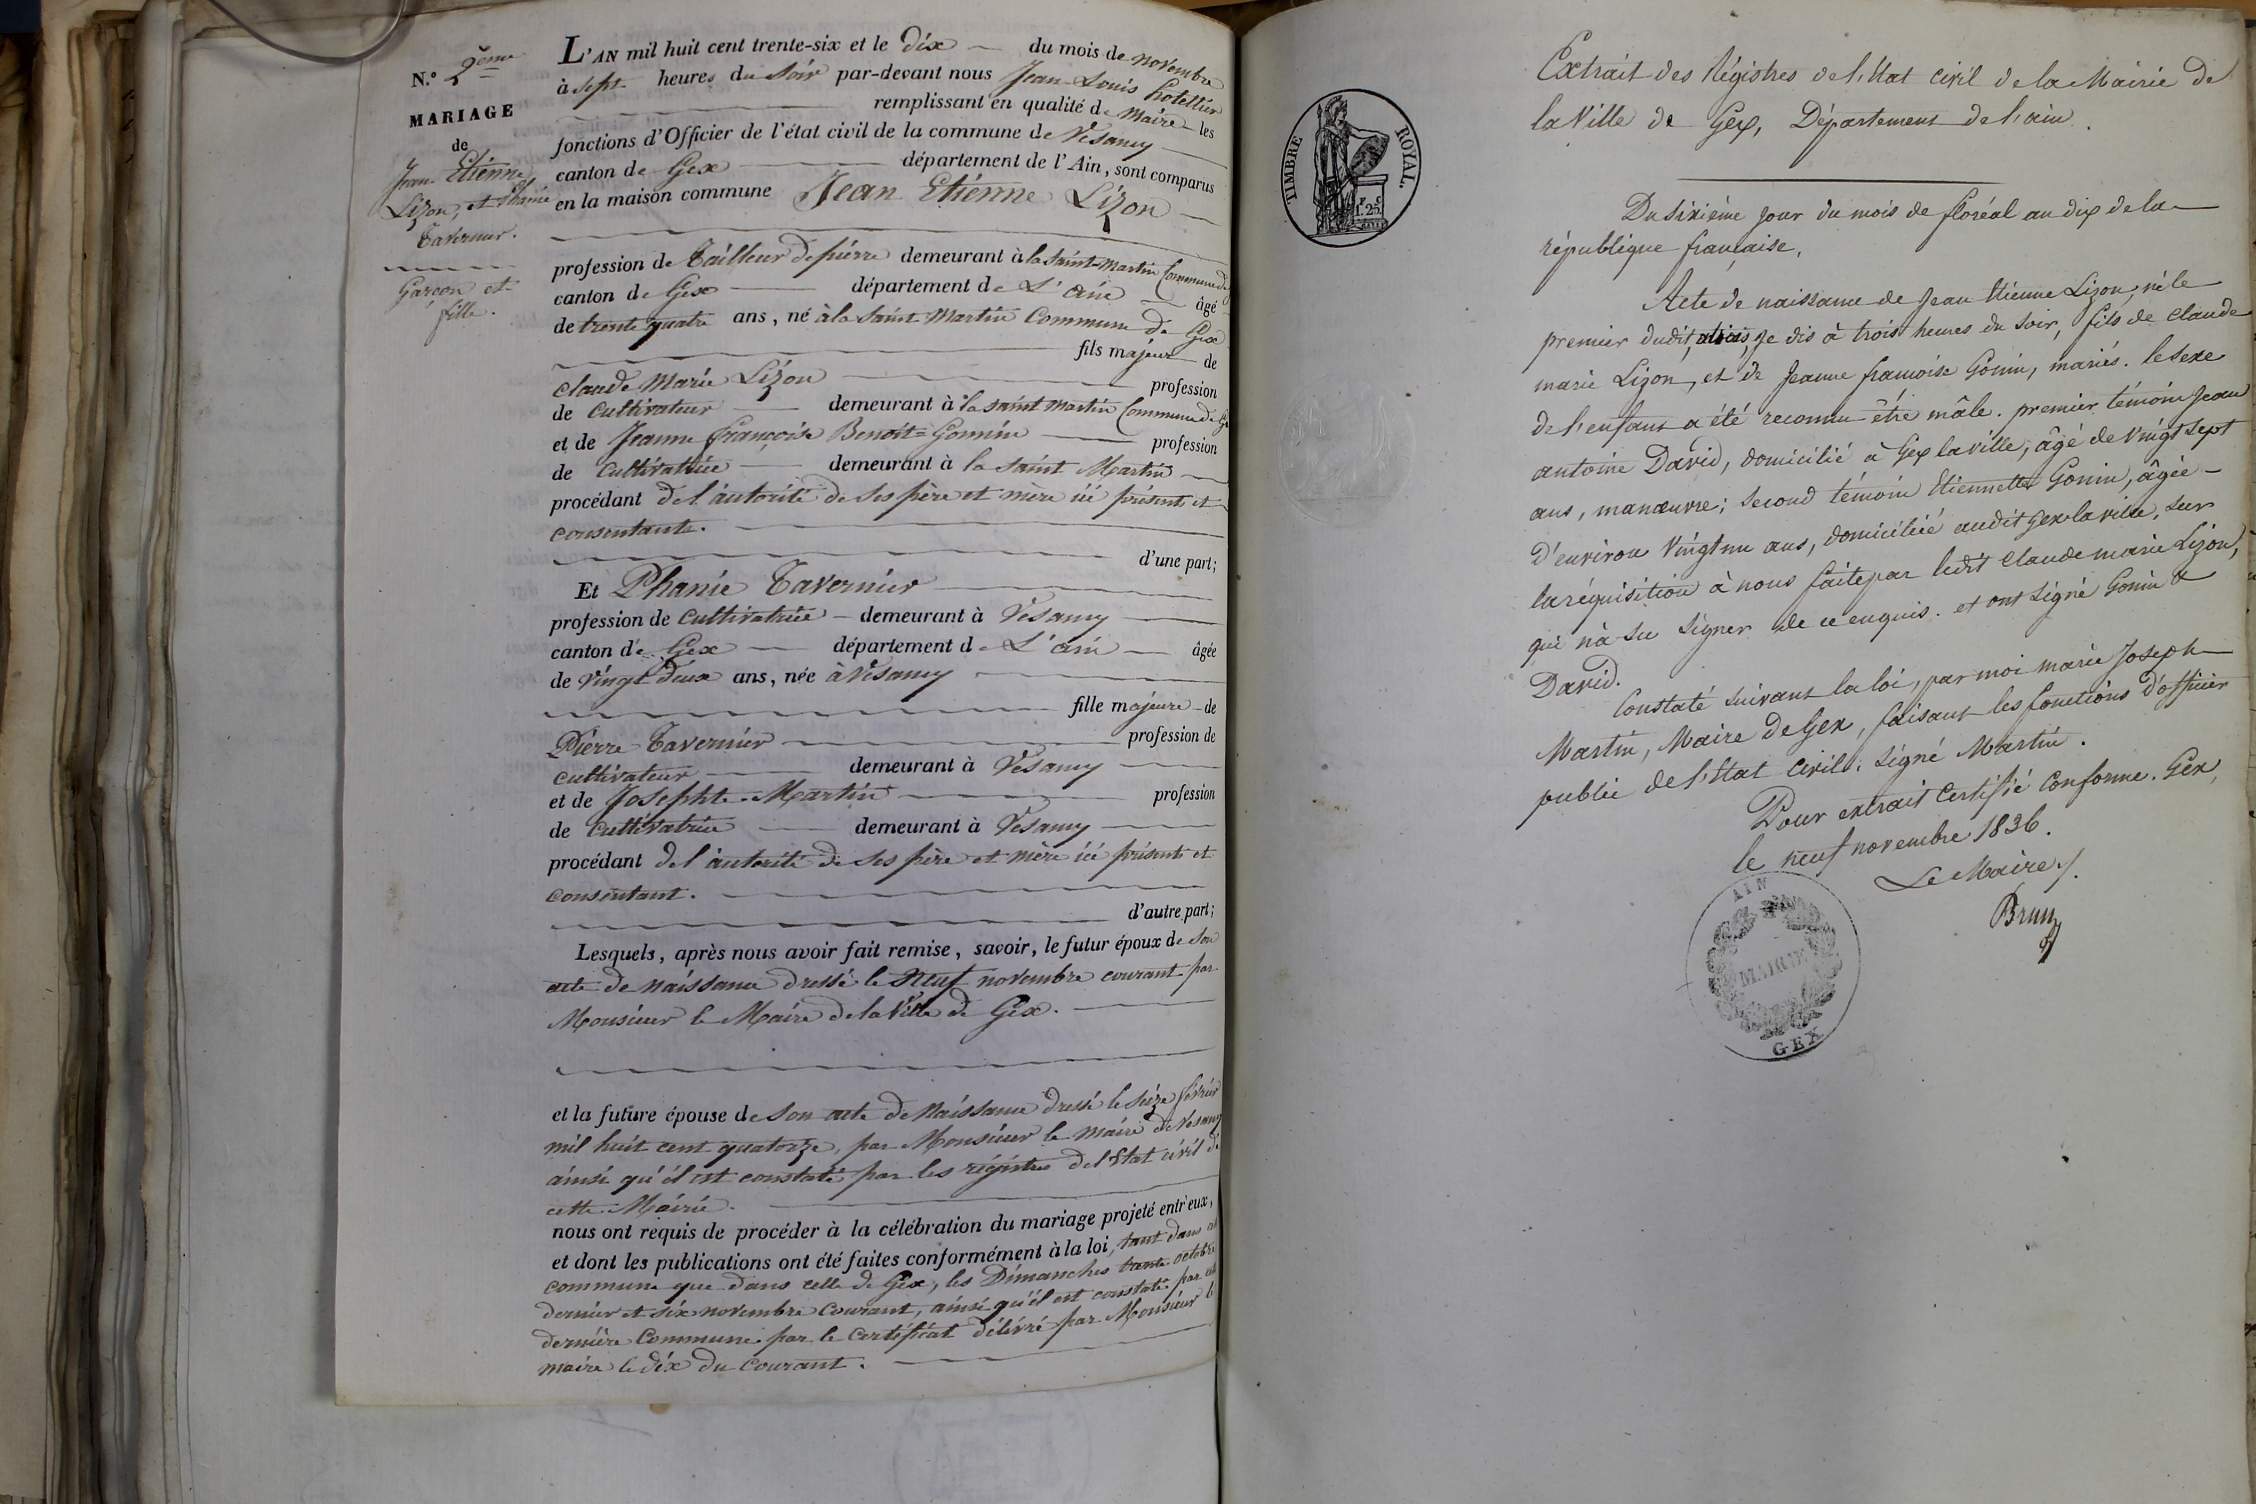 N.° 2ème
MARIAGE
de
Jean Etienne
Lizon, et Phanie
Tavernier.
Garçon et
fille.
L'AN mil huit cent trente-six et le dix du mois de novembre
à sept heures du soir par-devant nous Jean Louis hotellier
remplissant en qualité de Maire les
fonctions d'Officier de l'état civil de la commune de Vesancy
canton de Gex département de l'Ain, sont comparus
en la maison commune Jean Etienne Lizon
profession de Tailleur de pierre demeurant à la Saint-Martin Commune de
canton de Gex département de L'ain âgé
de trente quatre ans, né à la Saint Martin Commune de Gex
fils majeur de
Claude Marie Lizon profession
de Cultivateur demeurant à la Saint Martin Commune de Gex
et de Jeanne françoise Benoit=Gonnin profession
de Cultivatrice demeurant à la Saint Martin
procédant de l'autorité de ses père et mère ici présents et
consentants.
d'une part;
Et Phanie Tavernier
profession de Cultivatrice demeurant à Vesancy
canton de Gex département de L'ain âgée
de vingt deux ans, née à Vesancy
fille majeure de
Pierre Tavernier profession de
cultivateur demeurant à Vesancy
et de Josephte Martin profession
de Cultivatrice demeurant à Vesancy
procédant de l'autorité de ses père et mère ici présents et
consentant.
d'autre part;
Lesquels, après nous avoir fait remise, savoir, le futur époux de son
acte de naissance dressé le neuf novembre courant par
Monsieur le Maire de la Ville de Gex.
et la future épouse de son acte de Naissance dressé le seize février
mil huit cent quatorze, par Monsieur le maire de Vesancy
ainsi qu'il est constaté par les régistres de l'Etat civil de
cette Mairie.
nous ont requis de procéder à la célébration du mariage projeté entr'eux,
et dont les publications ont été faites conformément à la loi, tant dans
commune que dans celle de Gex, les Dimanches trente octobre
dernier et six novembre courant, ainsi qu'il est constaté par
dernière Commune par le certificat délivré par Monsieur le
maire le dix du courant.
TIMBRE ROYAL.
1.25
Extrait des Régistres de l'Etat civil de la Mairie de
la Ville de Gex, Département de l'ain.
Du sixième jour du mois de floréal an dix de la
république française,
Acte de naissance de Jean Etienne Lizon, né le
premier dudit, je dis à trois heures du soir, fils de Claude
marie Lizon, et de Jeanne francoise Gonin, mariés. le sexe
de l'enfant a été reconnu être mâle. premier témoin Jean
antoine David, domicilié à Gex la ville, âgé de vingt sept
ans, manœuvre; second témoin Etiennette Gonin, âgée
d'environ vingt un ans, domiciliée audit Gex la ville, sur
la réquisition à nous faite par ledit Claude marie Lizon,
qui n'a su signer de ce enquis. et ont signé Gonin &
David.
Constaté suivant la loi, par moi marie Joseph
Martin, Maire de Gex, faisant les fonctions d'officier
public de l'Etat Civil. Signé Martin.
Pour extrait certifié conforme. Gex,
le neuf novembre 1836.
Le Maire,
Brun
AIN
MAIRIE
GEX